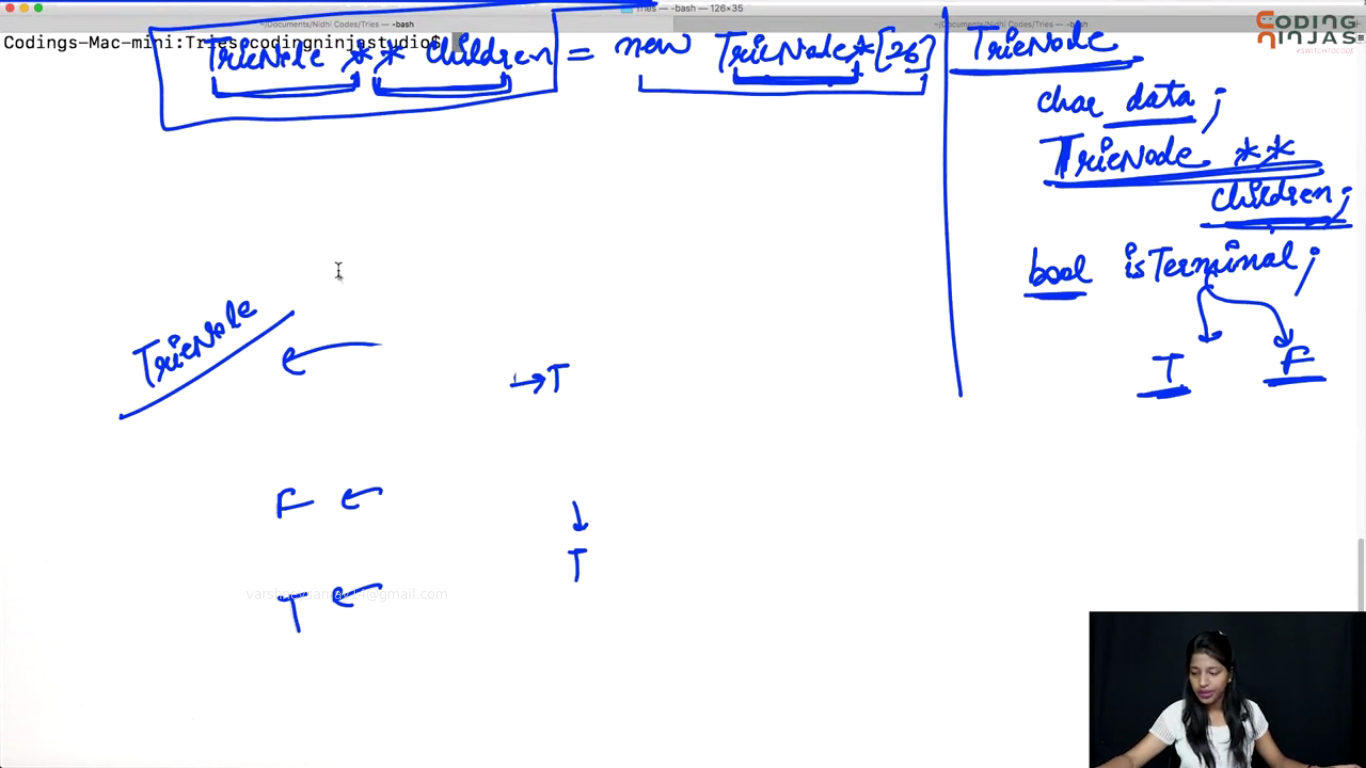 Tries — -bash — 126×35
~/Documents/Nidhi Codes/Tries — -bash
~/Documents/Nidhi Codes/Tries — -bash
CODING
NINJAS
#SWITCHTOCODE
Codings-Mac-mini:Tries codingninjastudio$
TrieNode ** children = new TrieNode*[26]
TrieNode
char data;
TrieNode **
children;
bool isTerminal;
T F
TrieNode
→T
F
T
T